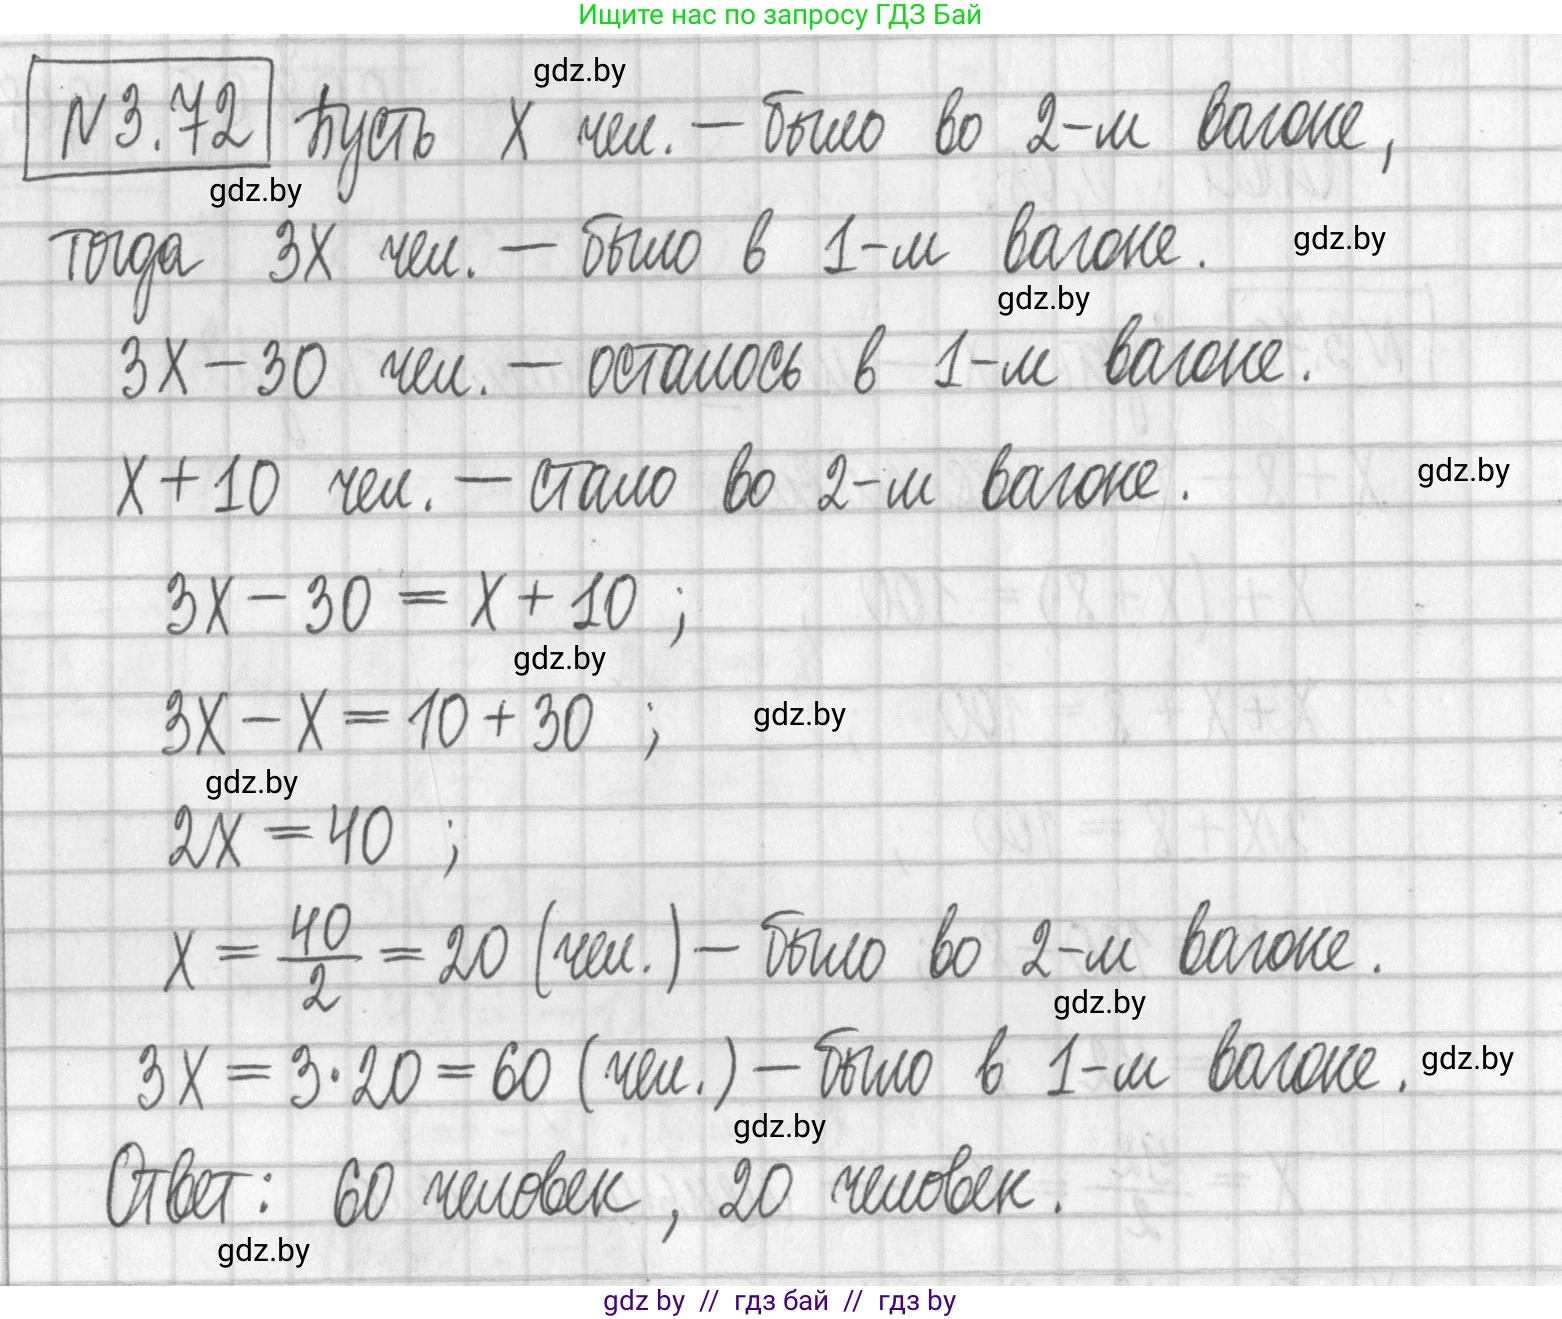 Ищите нас по запросу ГДЗ Бай
gdz.by
N 3.72 Пусть x чел. – было во 2-м вагоне,
gdz.by
тогда 3x чел. – было в 1-м вагоне. gdz.by
gdz.by
3x – 30 чел. – осталось в 1-м вагоне.
x + 10 чел. – стало во 2-м вагоне. gdz.by
3x – 30 = x + 10 ;
gdz.by
3x – x = 10 + 30 ; gdz.by
gdz.by
2x = 40 ;
x = 40/2 = 20 (чел.) – было во 2-м вагоне.
gdz.by
3x = 3·20 = 60 (чел.) – было в 1-м вагоне. gdz.by
gdz.by
Ответ: 60 человек, 20 человек.
gdz.by
gdz by // гдз бай // гдз by